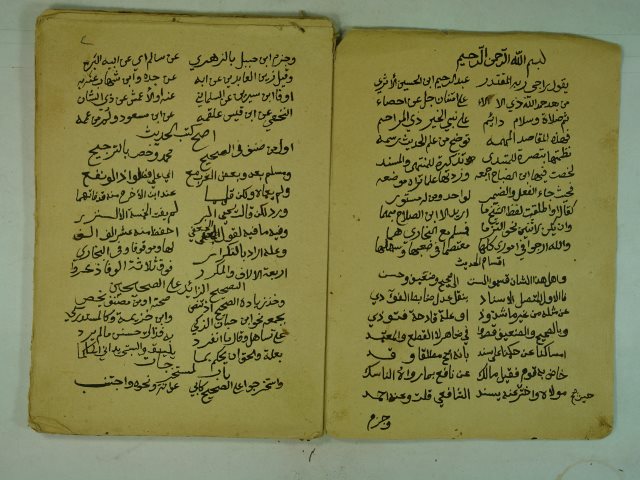 بسم الله الرحمن الرحيم
يقول راجي ربه المقتدر عبد الرحيم ابن الحسين الاثري
من بعد حمد الله ذي الالاء على امتنان جل عن احصاء
ثم صلاة وسلام دائم على نبي الخير ذي المراحم
فهذه المقاصد المهمه توضح من علم الحديث رسمه
نظمتها تبصرة للمبتدي تذكرة للمنتهي والمسند
لخصت فيها ابن الصلاح اجمعه وزدتها علما تراه موضعه
فحيث جاء الفعل والضمير لواحد ومن له مستور
كقال او اطلقت لفظ الشيخ ما اريد الا ابن الصلاح مبهما
وان يكن لاثنين نحو التزما فمسلم مع البخاري هما
والله ارجو في اموري كلها معتصما في صعبها وسهلها
اقسام الحديث
واهل هذا الشان قسموا السنن الى صحيح وضعيف وحسن
فالاول المتصل الاسناد بنقل عدل ضابط الفؤاد
عن مثله من غير ما شذوذ او علة قادحة فتوذي
وبالصحيح والضعيف قصدوا في ظاهر لا القطع والمعتمد
امساكنا عن حكمنا على سند بانه اصح مطلقا وقد
خاض به قوم فقيل مالك عن نافع بما رواه الناسك
مولاه واختر حيث عنه يسند الشافعي قلت وعنه احمد
وجزم
وجزم ابن حنبل بالزهري عن سالم اي عن ابيه البر
وقيل زين العابدين عن ابه عن جده وابن شهاب عنه به
او فابن سيرين عن السلماني عنه او الاعمش عن ذي الشان
النخعي عن ابن قيس علقمه عن ابن مسعود ولم من عممه
اصح كتب الحديث
اول من صنف في الصحيح محمد وخص بالترجيح
ومسلم بعد وبعض الغرب مع ابي علي فضلوا ذا لو نفع
ولم يعماه ولكن قلما عند ابن الاخرم منه قد فاتهما
ورد لكن قال يحيى البر لم يفت الخمسة الا النزر
وفيه ما فيه لقول الجعفي احفظ منه عشر الف الف
وعله اراد بالتكرار لها وموقوفا وفي البخاري
اربعة الالاف والمكرر فوق ثلاثة الوفا ذكروا
الصحيح الزائد على الصحيحين
وخذ زيادة الصحيح اذ تنص صحته او من مصنف يخص
بجمعه نحو ابن حبان الزكي وابن خزيمة وكالمستدرك
على تساهل وقال ما انفرد به فذاك حسن ما لم يرد
بعلة والحق ان يحكم بما يليق والبستي يداني الحاكما
المستخرجات
واستخرجوا على الصحيح كابي عوانة ونحوه واجتنب